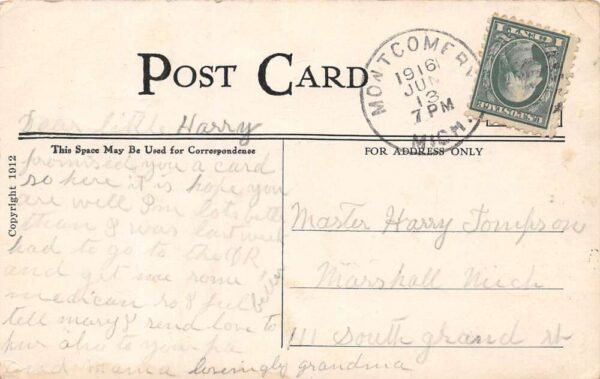 POST CARD
MONTGOMERY
1916
JUN
13
7 PM
MICH.
U.S. POSTAGE
1 CENT 1
Dear little Harry
This Space May Be Used for Correspondence
FOR ADDRESS ONLY
Copyright 1912
promised you a card
so here it is hope you
are well I'm lots better
than I was last week
had to go to the DR
and get me some
medican so I feel better
tell mary I send love to
hur also to your pa
and mama lovinngly grandma
Master Harry Tompson
Marshall Mich
111 South grand st